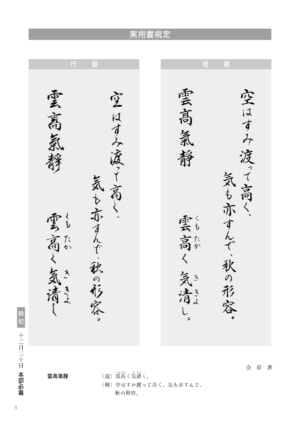 実用書規定
楷書
空はすみ渡って高く、
気も亦すんで、秋の形容。
雲高氣靜　雲高く気清し。
くもたか　ききよ
行書
空はすみ渡って高く、
気も亦すんで、秋の形容。
雲高氣靜　雲高く気清し
くもたか　ききよ
会長書
雲高氣静
（読）雲高く気清し。
（解）空はすみ渡って高く、気も亦すんで、
秋の形容。
締切　十二月二十日　本部必着